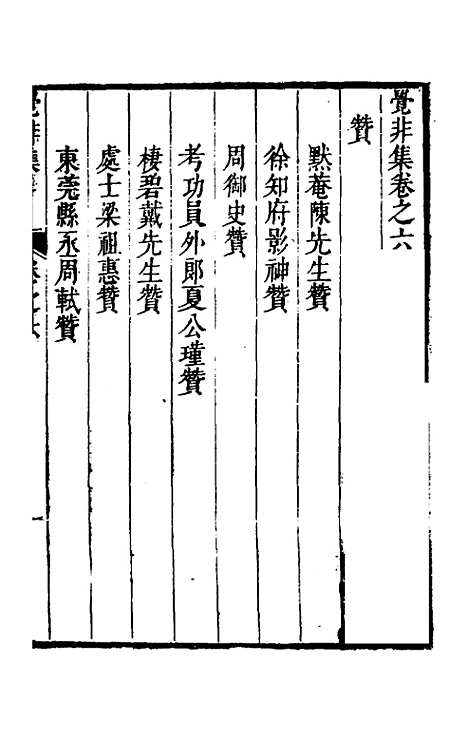 覺非集卷之六
贊
默菴陳先生贊
徐知府影神贊
周御史贊
考功員外郎夏公瑾贊
棲碧戴先生贊
處士梁祖惠贊
東莞縣丞周軾贊